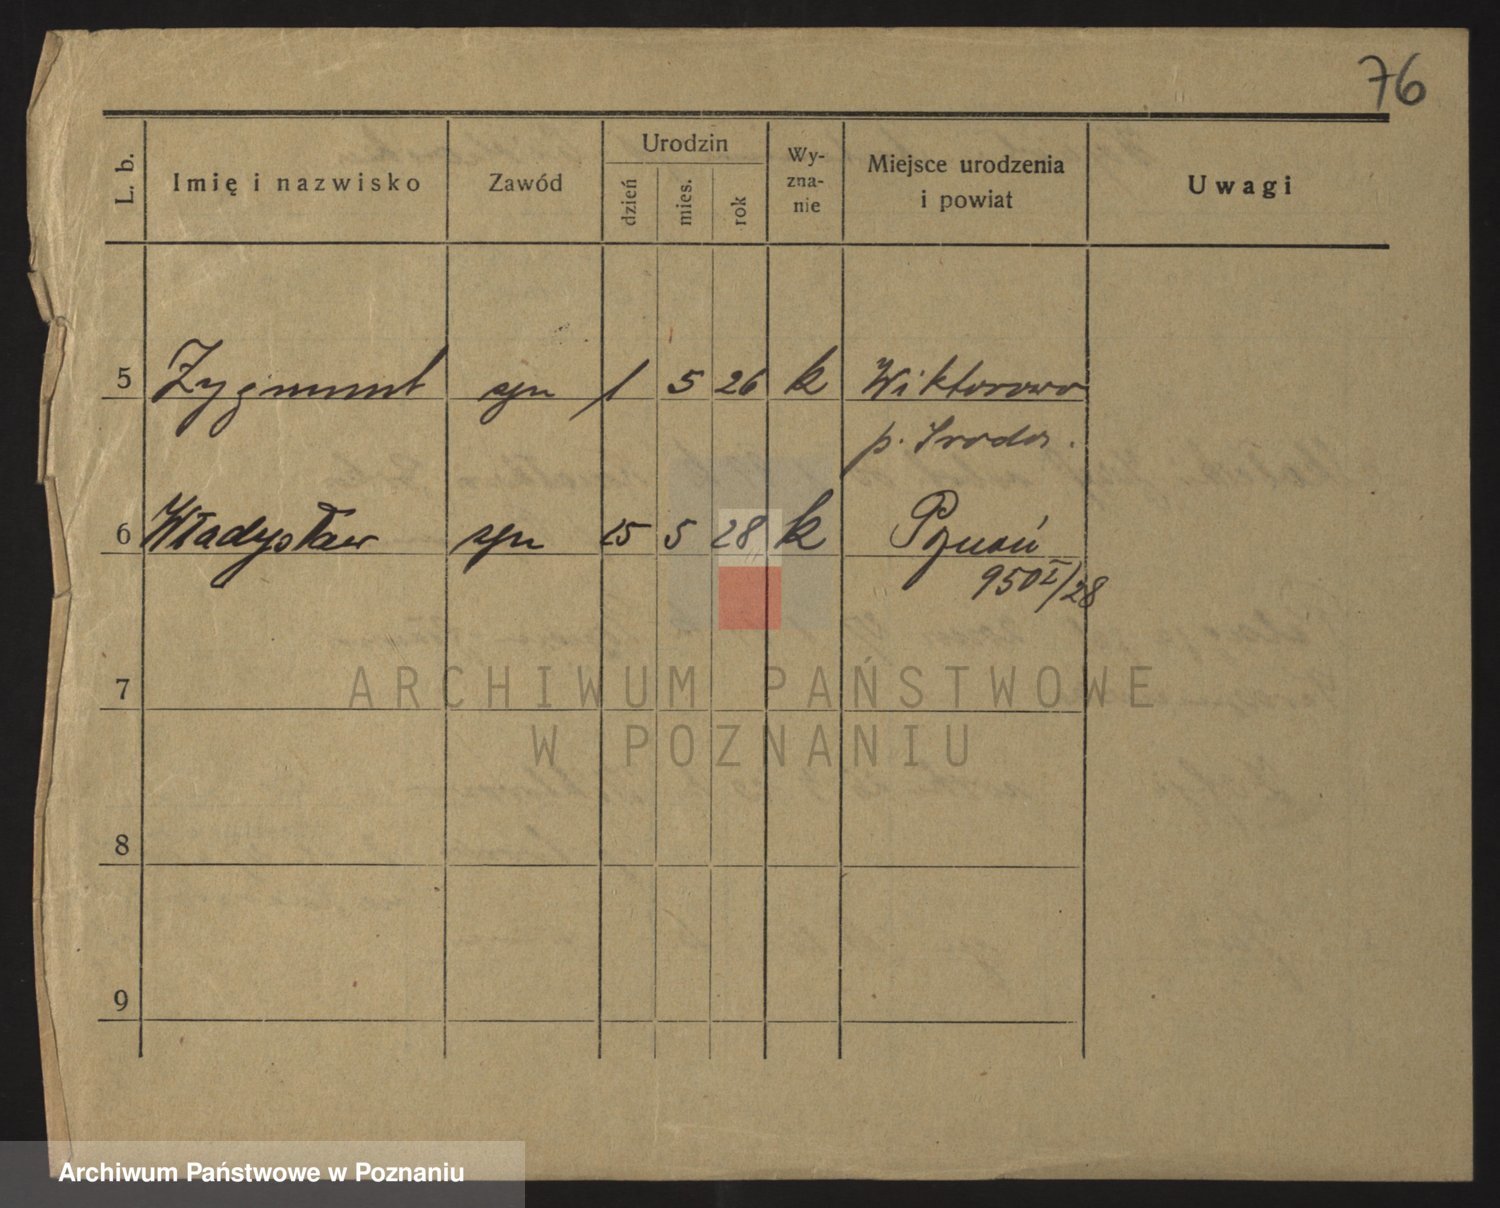 76
L. b. Imię i nazwisko Zawód Urodzin dzień mies. rok Wy-zna-nie Miejsce urodzenia i powiat Uwagi
5 Zygmunt syn 1 5 26 k Wiktorowo
p. Środa.
6 Władysław syn 15 5 28 k Poznań
950 I/28
7
ARCHIWUM PAŃSTWOWE
W POZNANIU
8
9
Archiwum Państwowe w Poznaniu